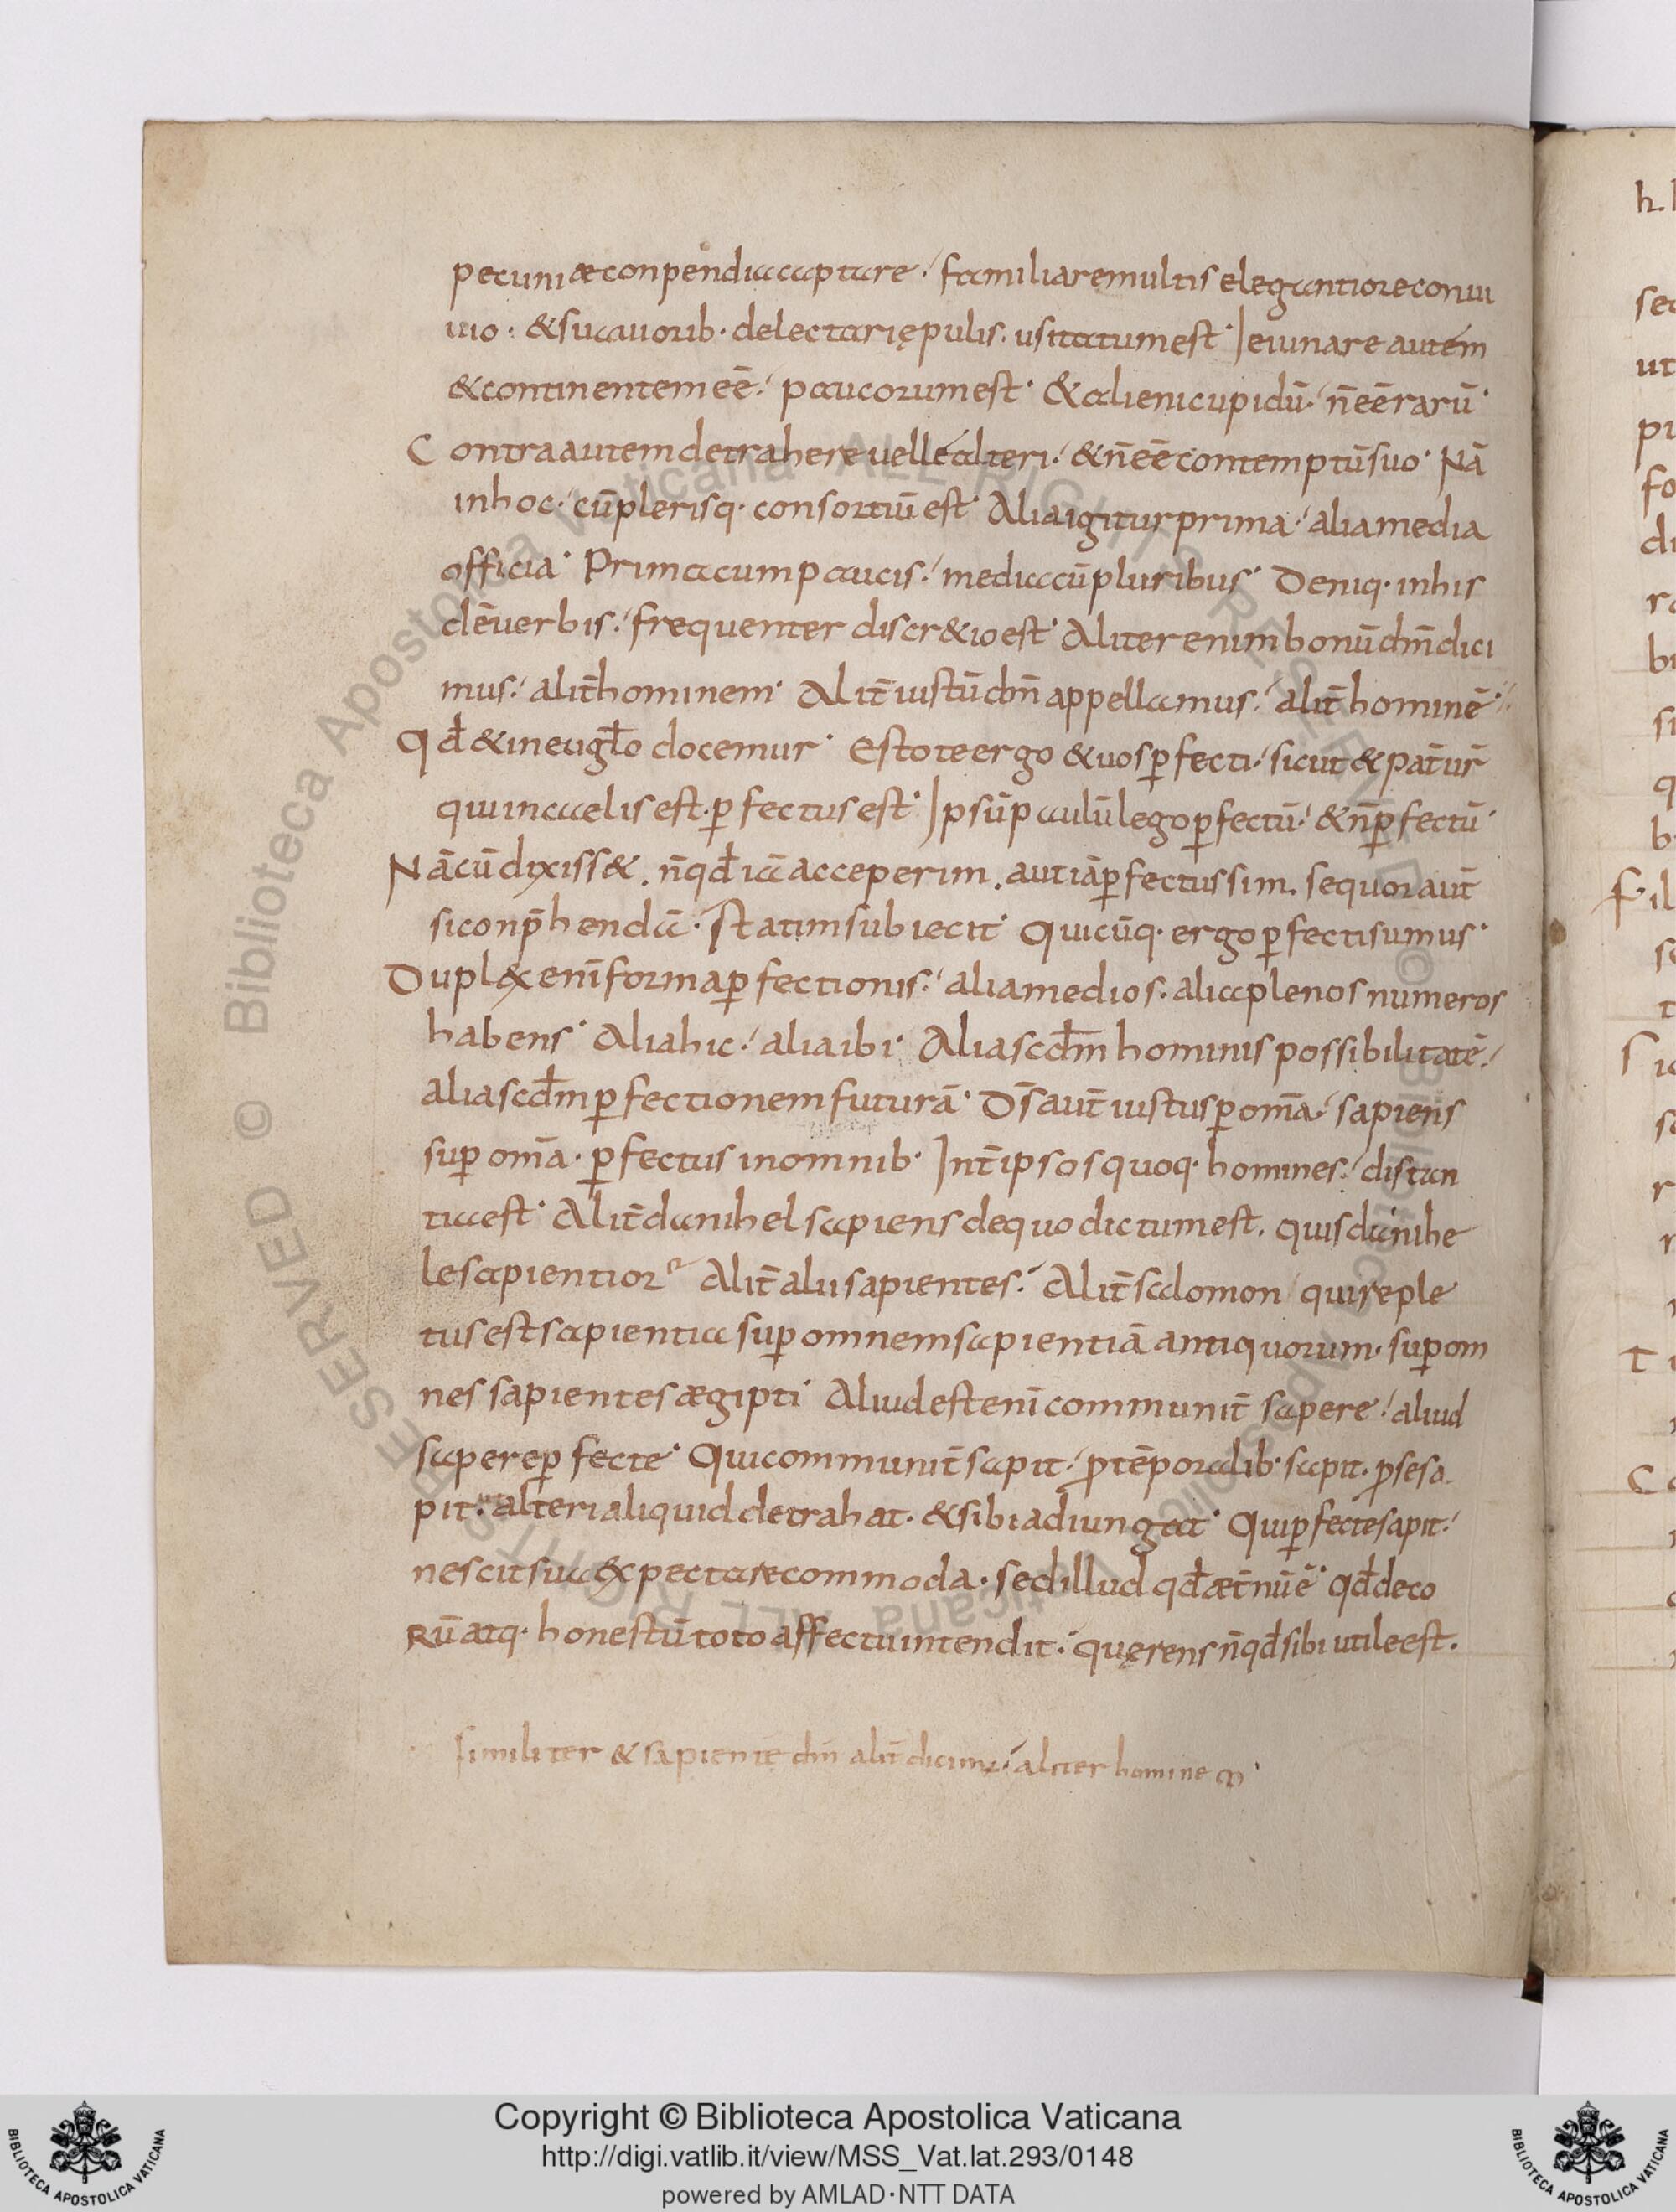 pecuniæ conpendia captare. familiare multis elegantiore conui
uio: & suauiorib· delectari ępulis. usitatum est· Ieiunare autem
& continentem eē. paucorum est· & alieni cupidū. n̄ eē rarū·
Contra autem detrahere uelle alteri. & n̄ eē contemptū suo· Nā
in hoc. cū plerisq· consortiū est· Alia igitur prima. alia media
officia· Prima cum paucis. media cū pluribus· Deniq· in his
dē uerbis. frequenter discr&io est· Aliter enim bonū dm̄ dici
mus. alit̄ hominem· Alit̄ iustū dm̄ appellamus. alit̄ hominē·
Qđ & in eugl̄o docemur· Estote ergo & uos ꝑfecti. sicut & pat̄ ur̄
qui in caelis est. ꝑfectus est· Ipsū paulū lego ꝑfectū. & n̄ ꝑfectū·
Nā cū dixiss&. n̄ qđ iā acceperim. aut iā ꝑfectus sim. sequor aut̄
si conp̄hendā. statim subiecit· Quicūq· ergo ꝑfecti sumus·
Duplex enī forma ꝑfectionis. alia medios. alia plenos numeros
habens· Alia hic. alia ibi· Alia scđm hominis possibilitatē.
alia scđm ꝑfectionem futurā· Ds̄ aut̄ iustus ꝑ om̄a. sapiens
suꝑ om̄a. ꝑfectus in omnib· Int̄ ipsos quoq· homines. distan
tia est· Alit̄ danihel sapiens de quo dictum est. quis danihe
le sapientior Alit̄ alii sapientes. Alit̄ salomon qui reple
tus est sapientia suꝑ omnem sapientiā antiquorum. suꝑ om
nes sapientes ægipti Aliud est enī communit̄ sapere. aliud
sapere ꝑfecte· Qui communit̄ sapit. ꝓ tēporalib· sapit. ꝓ se sa
pit. ut alteri aliquid detrahat. & sibi adiungat· Qui ꝑfecte sapit.
nescit sua expectare commoda. sed illud qđ æt̄nū ē· qđ deco
rū atq· honestū toto affectu intendit. quęrens n̄ qđ sibi utile est.
similiter & sapientē dm̄ alit̄ dicimus. aliter homine m·
h.
sec
ut
pr
fo
di
r
b
si
q
b
Fil
s
t
Sic
s
r
T
C
© Biblioteca Apostolica Vaticana ALL RIGHTS RESERVED
© Biblioteca Apostolica Vaticana ALL RIGHTS RESERVED
Copyright © Biblioteca Apostolica Vaticana
http://digi.vatlib.it/view/MSS_Vat.lat.293/0148
powered by AMLAD·NTT DATA
BIBLIOTECA APOSTOLICA VATICANA
BIBLIOTECA APOSTOLICA VATICANA